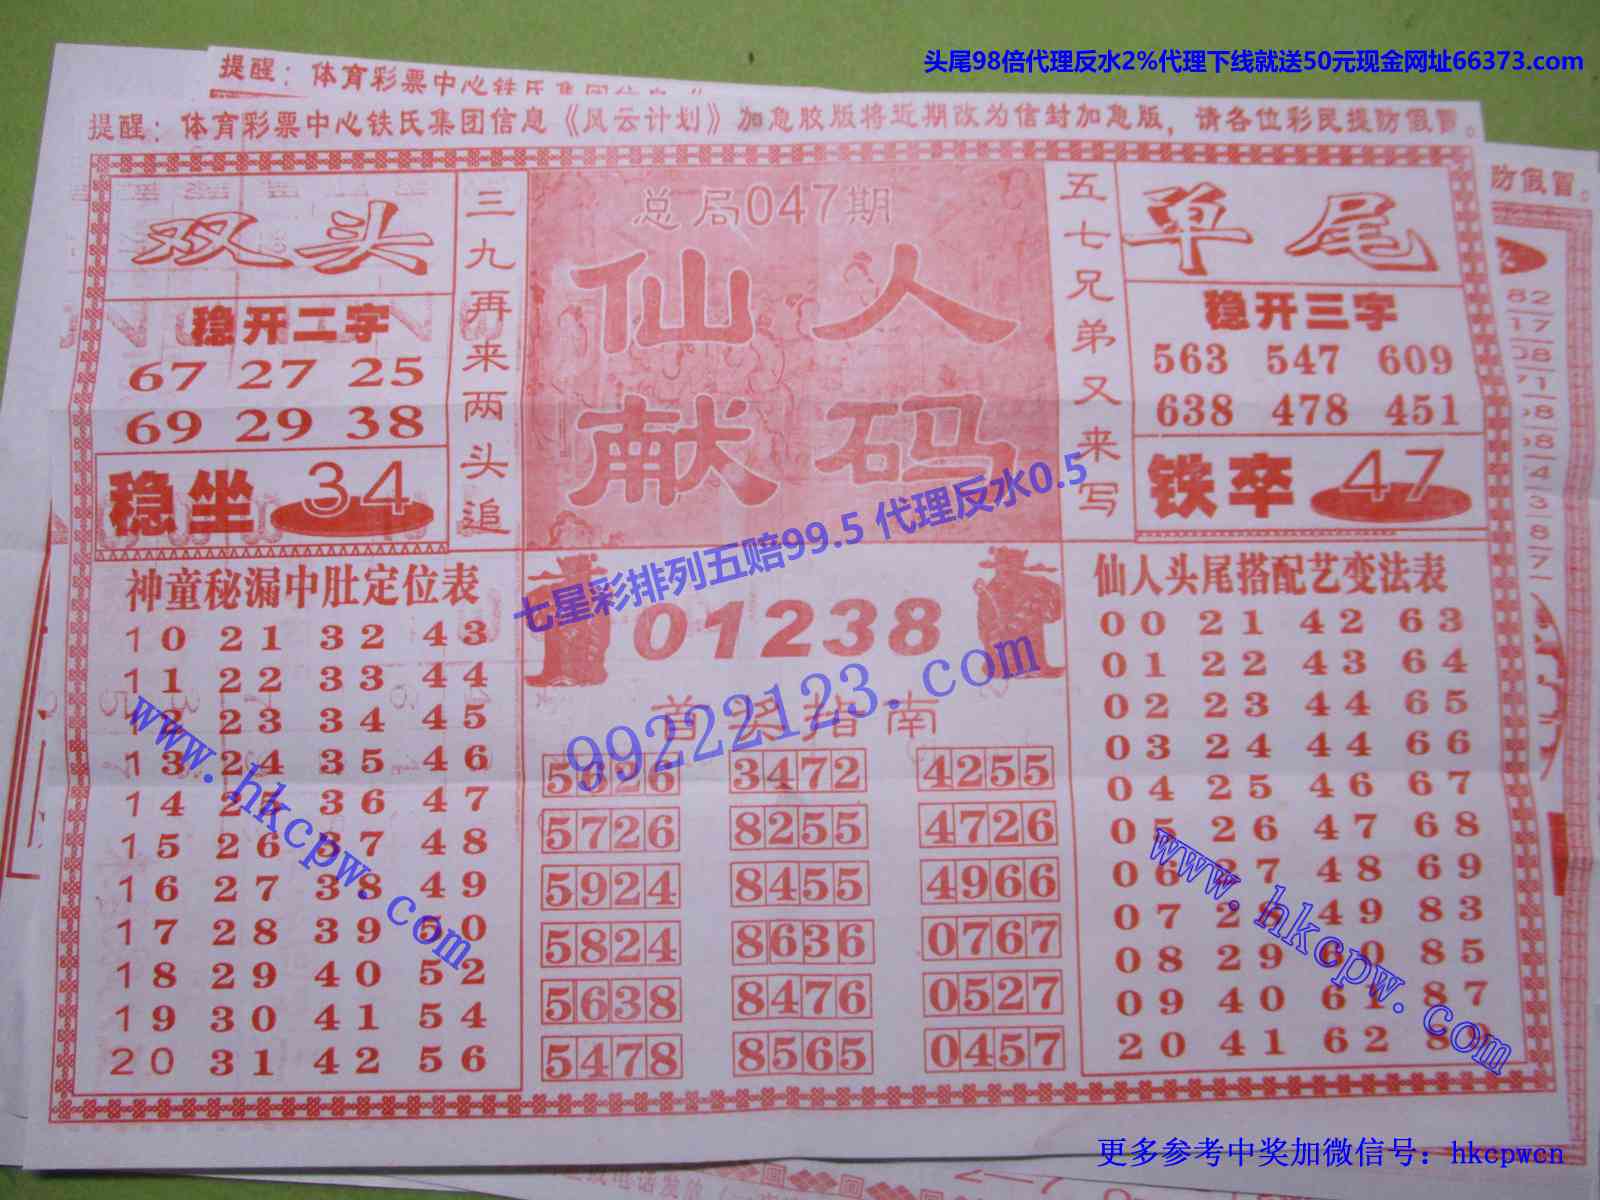 头尾98倍代理反水2%代理下线就送50元现金网址66373.com
提醒：体育彩票中心铁氏集团信息《
提醒：体育彩票中心铁氏集团信息《风云计划》加急胶版将近期改为信封加急版，请各位彩民提防假冒。
防假冒。
双头
稳开二字
67 27 25
69 29 38
稳坐 34
三九再来两头追
总局047期
仙人
献码
五七兄弟又来写
单尾
稳开三字
563 547 609
638 478 451
铁卒 47
七星彩排列五赔99.5 代理反水0.5
99222123.com
神童秘漏中肚定位表
10 21 32 43
11 22 33 44
12 23 34 45
13 24 35 46
14 25 36 47
15 26 37 48
16 27 38 49
17 28 39 50
18 29 40 52
19 30 41 54
20 31 42 56
www.hkcpw.com
01238
首奖指南
5626 3472 4255
5726 8255 4726
5924 8455 4966
5824 8636 0767
5638 8476 0527
5478 8565 0457
仙人头尾搭配艺变法表
00 21 42 63
01 22 43 64
02 23 44 65
03 24 44 66
04 25 46 67
05 26 47 68
06 27 48 69
07 28 49 83
08 29 60 85
09 40 61 87
20 41 62 8
www.hkcpw.com
更多参考中奖加微信号：hkcpwcn